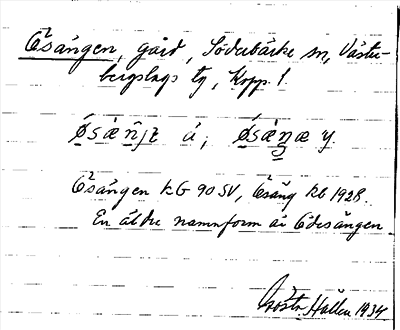 Ösängen, gård, Söderbärke sn, Väster-
bergslags tg, Kopp. l
ä, y
Ösängen KG 90 SV, Ösäng kb 1928.
En äldre namnform är Ödesängen
Gösta Hallén 1934